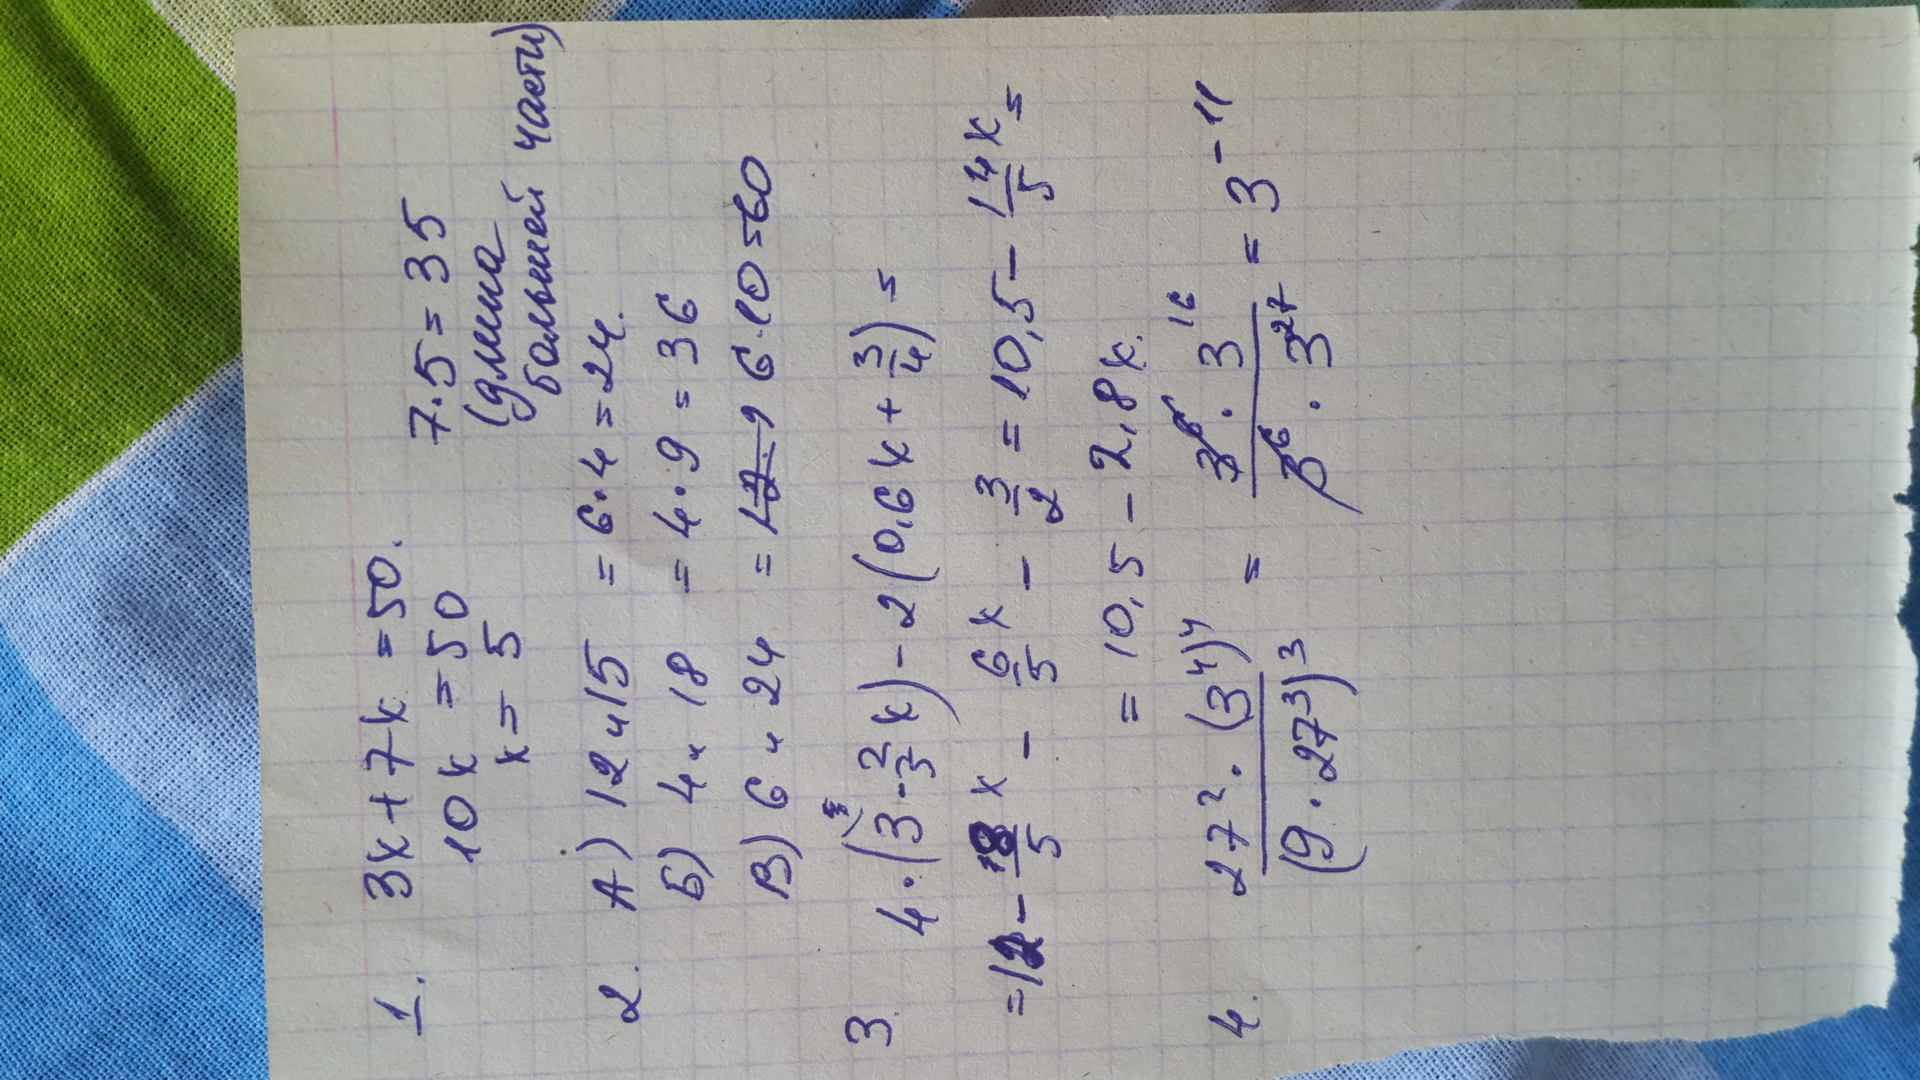 1. 3x + 7x = 50. 7·5 = 35
10x = 50 (длина
x = 5 большей части)
2. А) 12 и 15 = 6·4 = 24.
Б) 4 и 18 = 4·9 = 36
В) 6 и 24 = 6·10 = 60
3. 4·(3 - 2/3 x) - 2(0,6x + 3/4) =
= 12 - 8/5 x - 6/5 x - 3/2 = 10,5 - 14/5 x =
= 10,5 - 2,8x.
4. 27²·(3⁴)⁴ / (9·27³)³ = 3⁶·3¹⁶ / 3⁶·3²⁷ = 3⁻¹¹